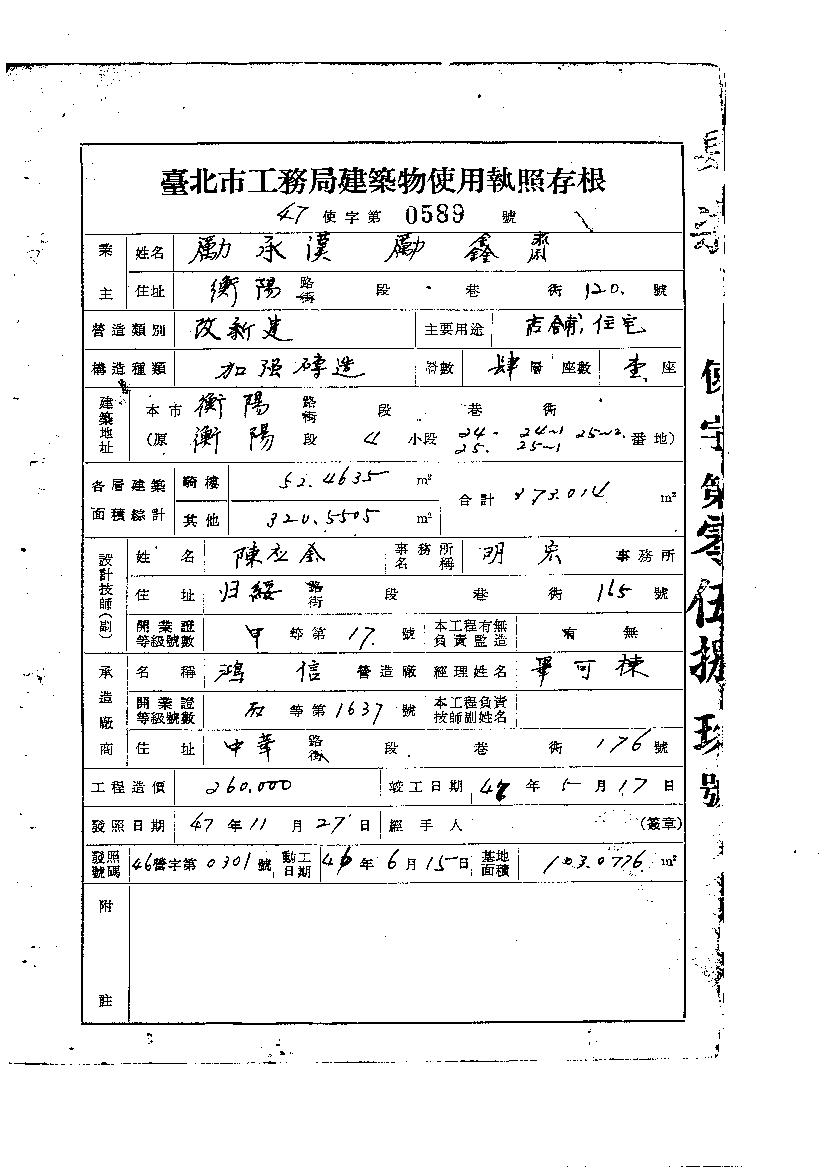 臺北市工務局建築物使用執照存根
47 使字第 0589 號
業主 姓名 勵承漢 勵鑫齋
住址 衡陽 路街 段 巷 街 120. 號
營造類別 改新建 主要用途 店舖,住宅
構造種類 加强磚造 層數 肆層 座數 壹座
建築地址 本市 衡陽 路街 段 巷 街
(原 衡陽 段 4 小段 24- 24~1 25~2 番地)
25. 25~1
各層建築面積綜計 騎樓 52.4635 m²
合計 373.014 m²
其他 320.5505 m²
設計技師(副) 姓名 陳 事務所名稱 明宏 事務所
住址 归綏 路街 段 巷 街 165 號
開業證等級號數 甲 等第 17. 號 本工程有無負責監造 有 無
承造廠商 名稱 鴻信 營造廠 經理姓名 畢可棟
開業證等級號數 等第 1637 號 本工程負責技師副姓名
住址 中華 路街 段 巷 街 176 號
工程造價 260.000 竣工日期 47 年 5 月 17 日
發照日期 47 年 11 月 27 日 經手人 (簽章)
發照號碼 46 營字第 0301 號 動工日期 46 年 6 月 15 日 基地面積 103.0776 m²
附註
使字第零伍捌玖號